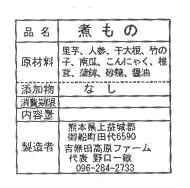 品名 煮もの
原材料 里芋、人参、干大根、竹の
子、南瓜、こんにゃく、椎
茸、蒲鉾、砂糖、醤油
添加物 なし
消費期限
内容量
製造者 熊本県上益城郡
御船町田代6590
吉無田高原ファーム
代表 野口一敏
096-284-2733